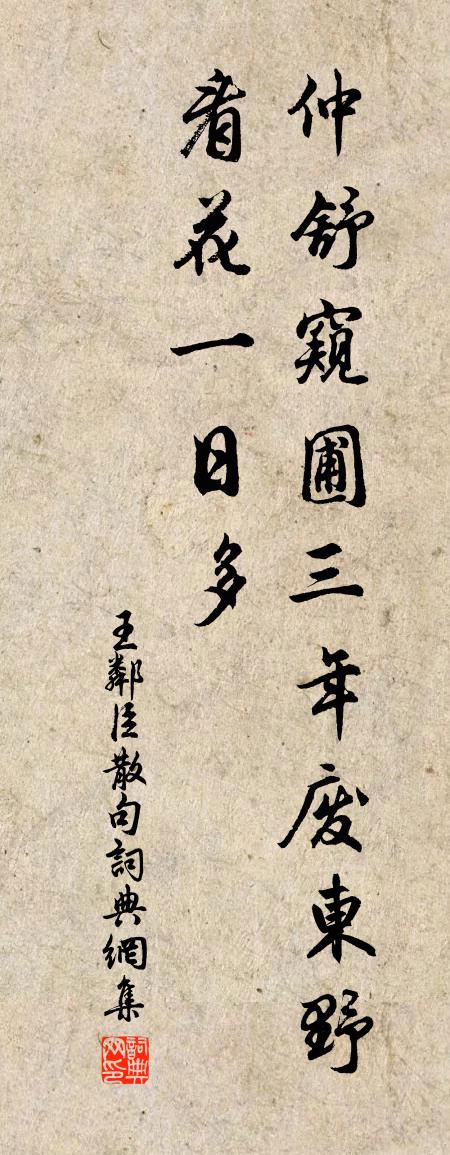 仲舒窺圃三年廢東野
看花一日多
王鄰臣散句詞典網集
詞典网印